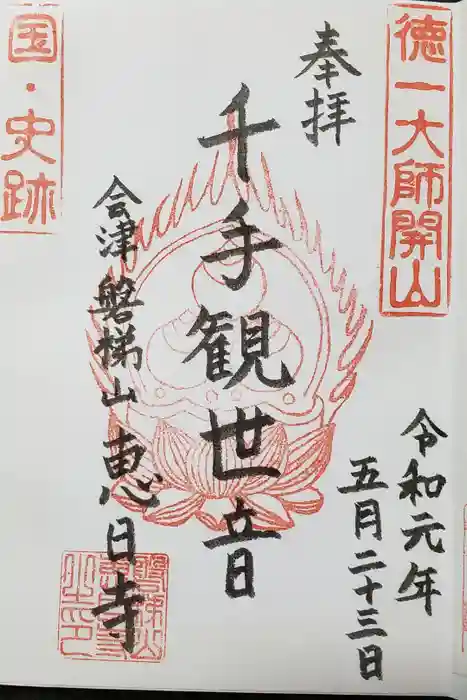 徳一大師開山
令和元年
五月二十三日
奉拝
千手観世音
会津磐梯山恵日寺
国・史跡